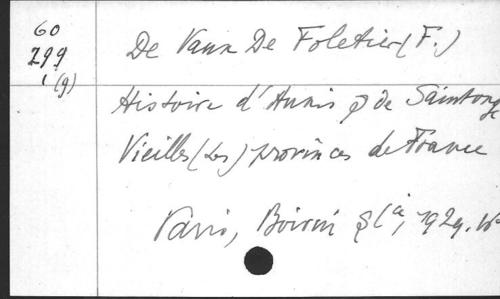 60
299
1 (g)
De Vaux De Foletier (F.)
Histoire d'Aunis & de Saintonge
Vieilles (Les) provinces de France
Paris, Boivin & Cie, 1929.